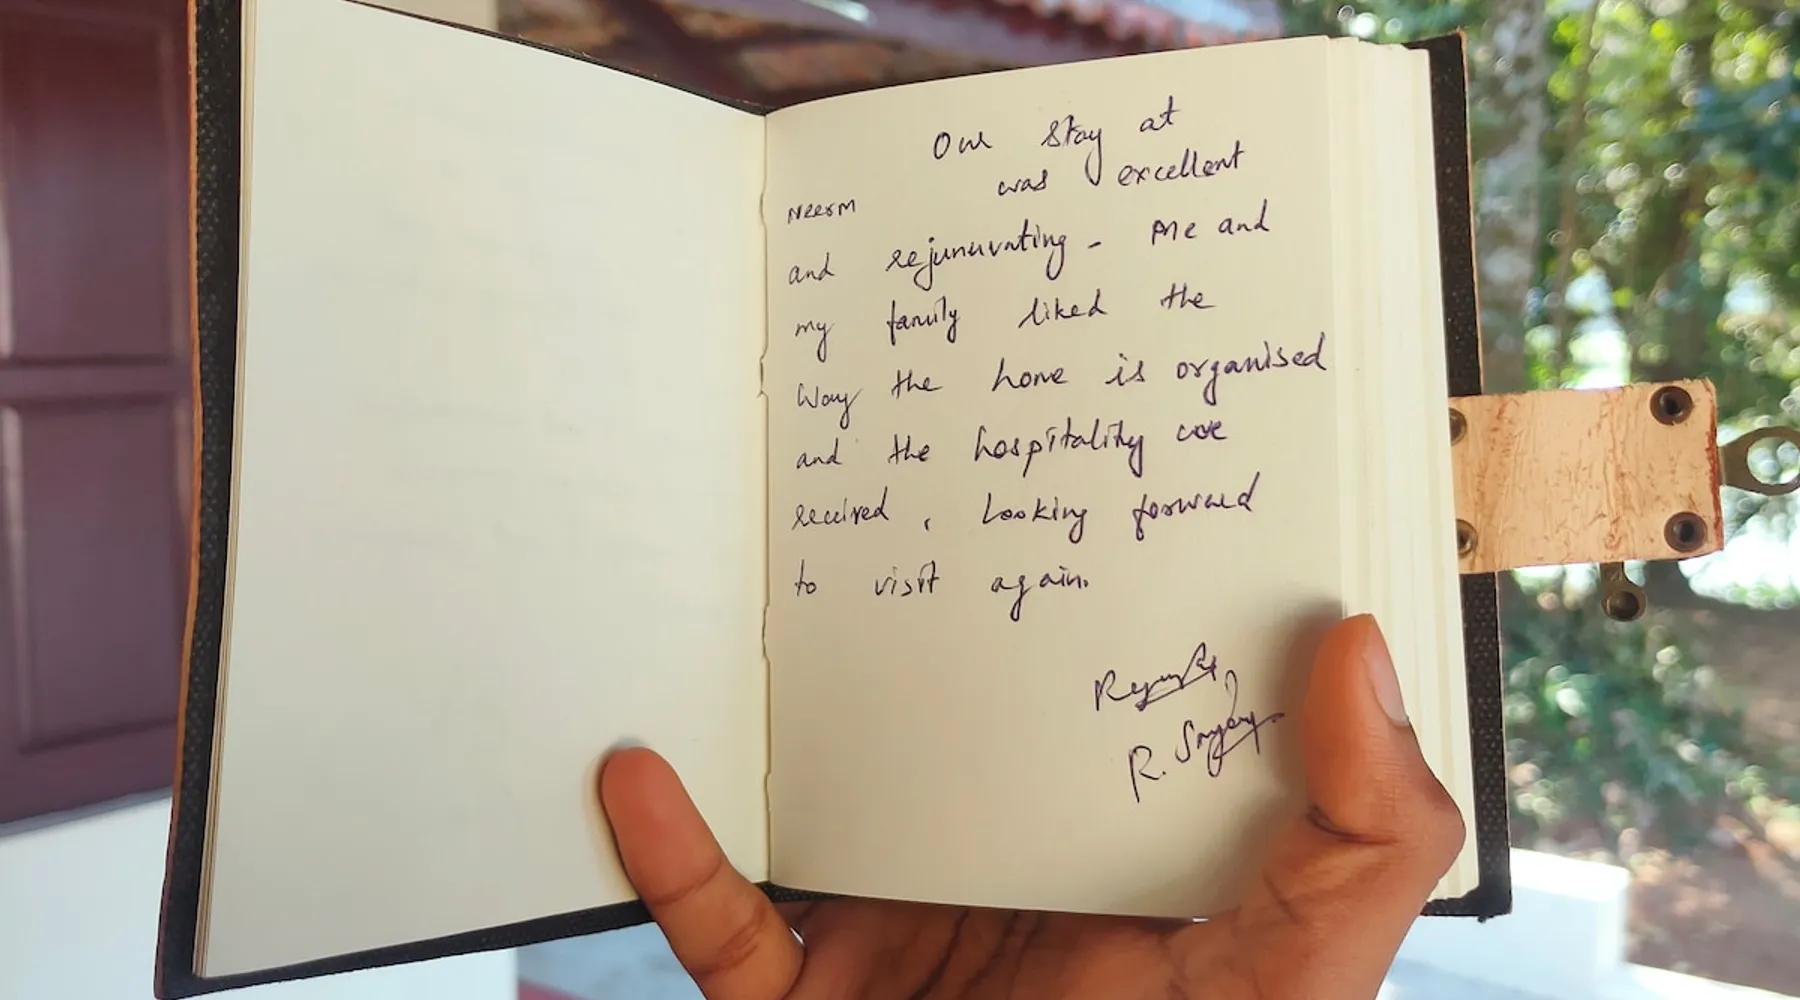 Our stay at
Neerm was excellent
and rejunuvating - Me and
my family liked the
way the home is organised
and the hospitality we
received, Looking forward
to visit again.
R.